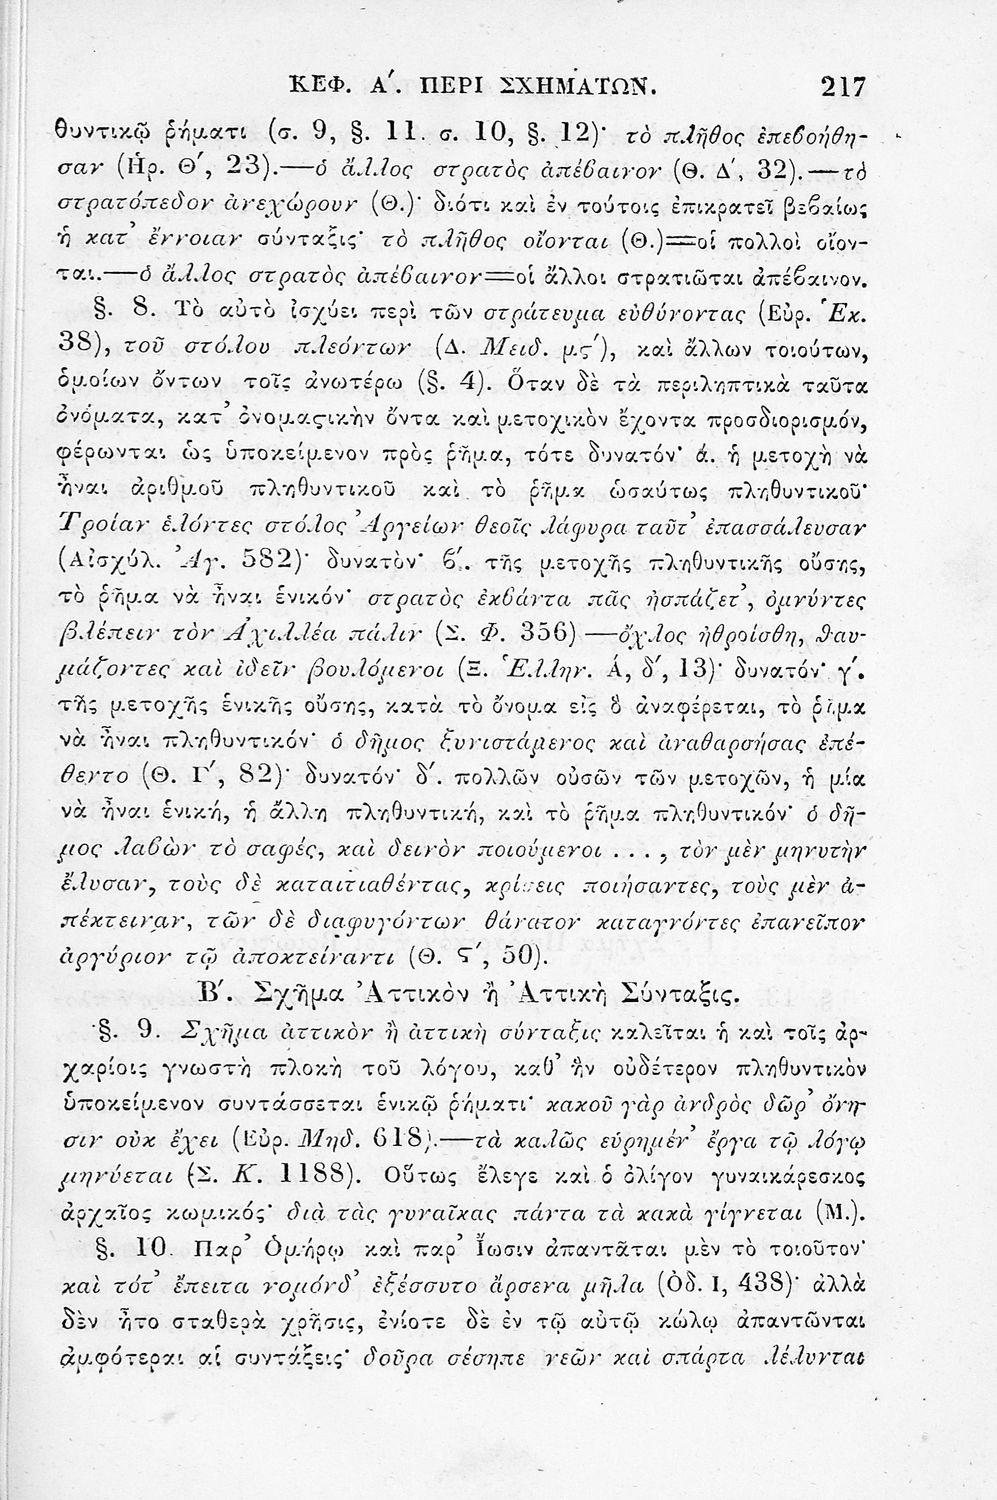 ΚΕΦ. Α΄. ΠΕΡΙ ΣΧΗΜΑΤΩΝ. 217
θυντικῷ ῥήματι (σ. 9, §. 11. σ. 10, §. 12)· τὸ πλῆθος ἐπεβοήθη-
σαν (Ηρ. Θ΄, 23).—ὁ ἄλλος στρατὸς ἀπέβαινον (Θ. Δ΄, 32).—τὸ
στρατόπεδον ἀνεχώρουν (Θ.)· διότι καὶ ἐν τούτοις ἐπικρατεῖ βεβαίως
ἡ κατ᾽ ἔννοιαν σύνταξις· τὸ πλῆθος οἴονται (Θ.)=οἱ πολλοὶ οἴον-
ται.—ὁ ἄλλος στρατὸς ἀπέβαινον=οἱ ἄλλοι στρατιῶται ἀπέβαινον.
§. 8. Τὸ αὐτὸ ἰσχύει περὶ τῶν στράτευμα εὐθύνοντας (Εὐρ. Ἑκ.
38), τοῦ στόλου πλεόντων (Δ. Μειδ. μς΄), καὶ ἄλλων τοιούτων,
ὁμοίων ὄντων τοῖς ἀνωτέρω (§. 4). Ὅταν δὲ τὰ περιληπτικὰ ταῦτα
ὀνόματα, κατ᾽ ὀνομαςικὴν ὄντα καὶ μετοχικὸν ἔχοντα προσδιορισμόν,
φέρωνται ὡς ὑποκείμενον πρὸς ῥῆμα, τότε δυνατόν· ά. ἡ μετοχὴ νὰ
ἦναι ἀριθμοῦ πληθυντικοῦ καὶ τὸ ῥῆμα ὡσαύτως πληθυντικοῦ·
Τροίαν ἑλόντες στόλος Ἀργείων θεοῖς λάφυρα ταῦτ᾽ ἐπασσάλευσαν
(Αἰσχύλ. Ἀγ. 582)· δυνατὸν· β΄. τῆς μετοχῆς πληθυντικῆς οὔσης,
τὸ ῥῆμα νὰ ἦναι ἑνικόν· στρατὸς ἐκβάντα πᾶς ἠσπάζετ᾽, ὀμνύντες
βλέπειν τὸν Ἀχιλλέα πάλιν (Σ. Φ. 356)—ὄχλος ἠθροίσθη, θαυ-
μάζοντες καὶ ἰδεῖν βουλόμενοι (Ξ. Ἑλλην. Ά, δ΄, 13)· δυνατόν· γ΄.
τῆς μετοχῆς ἑνικῆς οὔσης, κατὰ τὸ ὄνομα εἰς ὃ ἀναφέρεται, τὸ ῥῆμα
νὰ ἦναι πληθυντικόν· ὁ δῆμος ξυνιστάμενος καὶ ἀναθαρσήσας ἐπέ-
θεντο (Θ. Γ΄, 82)· δυνατόν· δ΄. πολλῶν οὐσῶν τῶν μετοχῶν, ἡ μία
νὰ ἦναι ἑνική, ἡ ἄλλη πληθυντική, καὶ τὸ ῥῆμα πληθυντικόν· ὁ δῆ-
μος λαβὼν τὸ σαφές, καὶ δεινὸν ποιούμενοι ...., τὸν μὲν μηνυτὴν
ἔλυσαν, τοὺς δὲ καταιτιαθέντας, κρίσεις ποιήσαντες, τοὺς μὲν ἀ-
πέκτειναν, τῶν δὲ διαφυγόντων θάνατον καταγνόντες ἐπανεῖπον
ἀργύριον τῷ ἀποκτείναντι (Θ. Ϛ΄, 50).
Β΄. Σχῆμα Ἀττικὸν ἢ Ἀττικὴ Σύνταξις.
§. 9. Σχῆμα ἀττικὸν ἢ ἀττικὴ σύνταξις καλεῖται ἡ καὶ τοῖς ἀρ-
χαρίοις γνωστὴ πλοκὴ τοῦ λόγου, καθ᾽ ἣν οὐδέτερον πληθυντικὸν
ὑποκείμενον συντάσσεται ἑνικῷ ῥήματι· κακοῦ γὰρ ἀνδρὸς δῶρ᾽ ὄνη-
σιν οὐκ ἔχει (Εὐρ. Μηδ. 618).—τὰ καλῶς εὑρημέν᾽ ἔργα τῷ λόγῳ
μηνύεται (Σ. Κ. 1188). Οὕτως ἔλεγε καὶ ὁ ὀλίγον γυναικάρεσκος
ἀρχαῖος κωμικός· διὰ τὰς γυναῖκας πάντα τὰ κακὰ γίγνεται (Μ.).
§. 10. Παρ᾽ Ὁμήρῳ καὶ παρ᾽ Ἴωσιν ἀπαντᾶται μὲν τὸ τοιοῦτον·
καὶ τότ᾽ ἔπειτα νομόνδ᾽ ἐξέσσυτο ἄρσενα μῆλα (Ὀδ. Ι, 438)· ἀλλὰ
δὲν ἦτο σταθερὰ χρῆσις, ἐνίοτε δὲ ἐν τῷ αὐτῷ κώλῳ ἀπαντῶνται
ἀμφότεραι αἱ συντάξεις· δοῦρα σέσηπε νεῶν καὶ σπάρτα λέλυνται